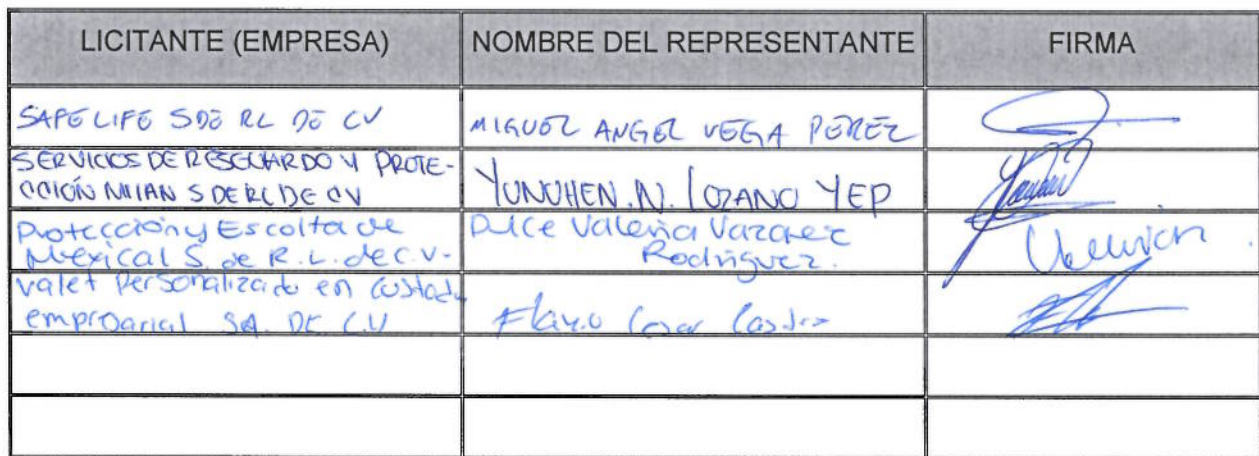 LICITANTE (EMPRESA) NOMBRE DEL REPRESENTANTE FIRMA
SAFE LIFE S DE RL DE CV MIGUEL ANGEL VEGA PEREZ
SERVICIOS DE RESGUARDO Y PROTE-
CCIÓN S DE RL DE CV YUNUHEN. N. LOZANO YEP
Protección y Escolta de Dulce Valeria Vazquez
Mexicali S. de R.L. de C.V. Rodriguez.
Valet Personalizado en custodia
SA. DE C.V Cesar Castro